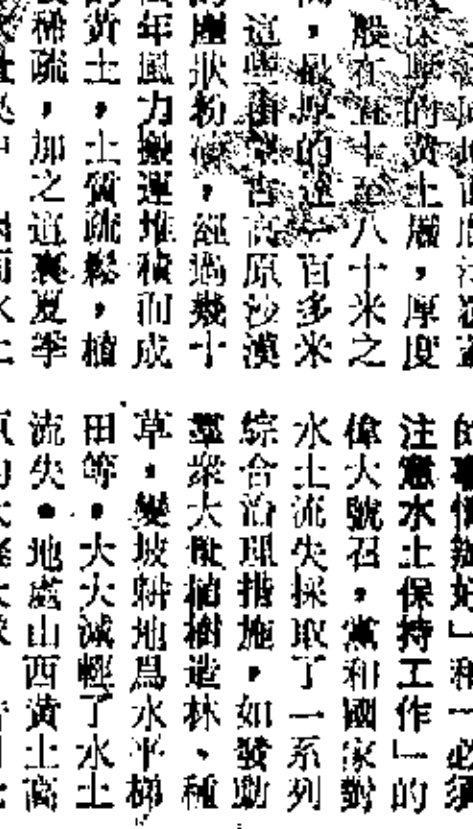 深厚的黄土層，厚度
般在五十至八十米之
，最厚的達一百多米
這些由蒙古高原沙漠
塵狀粉，經過幾十
年風力搬運堆積而成
黃土，土質疏鬆，植
稀疏，加之這裏夏季
的事情辦好」和「必須
注意水土保持工作」的
偉大號召，黨和國家對
水土流失採取了一系列
綜合治理措施，如發動
羣衆大批植樹造林、種
草，變坡耕地爲水平梯
田等，大大減輕了水土
流失。地處山西黃土高